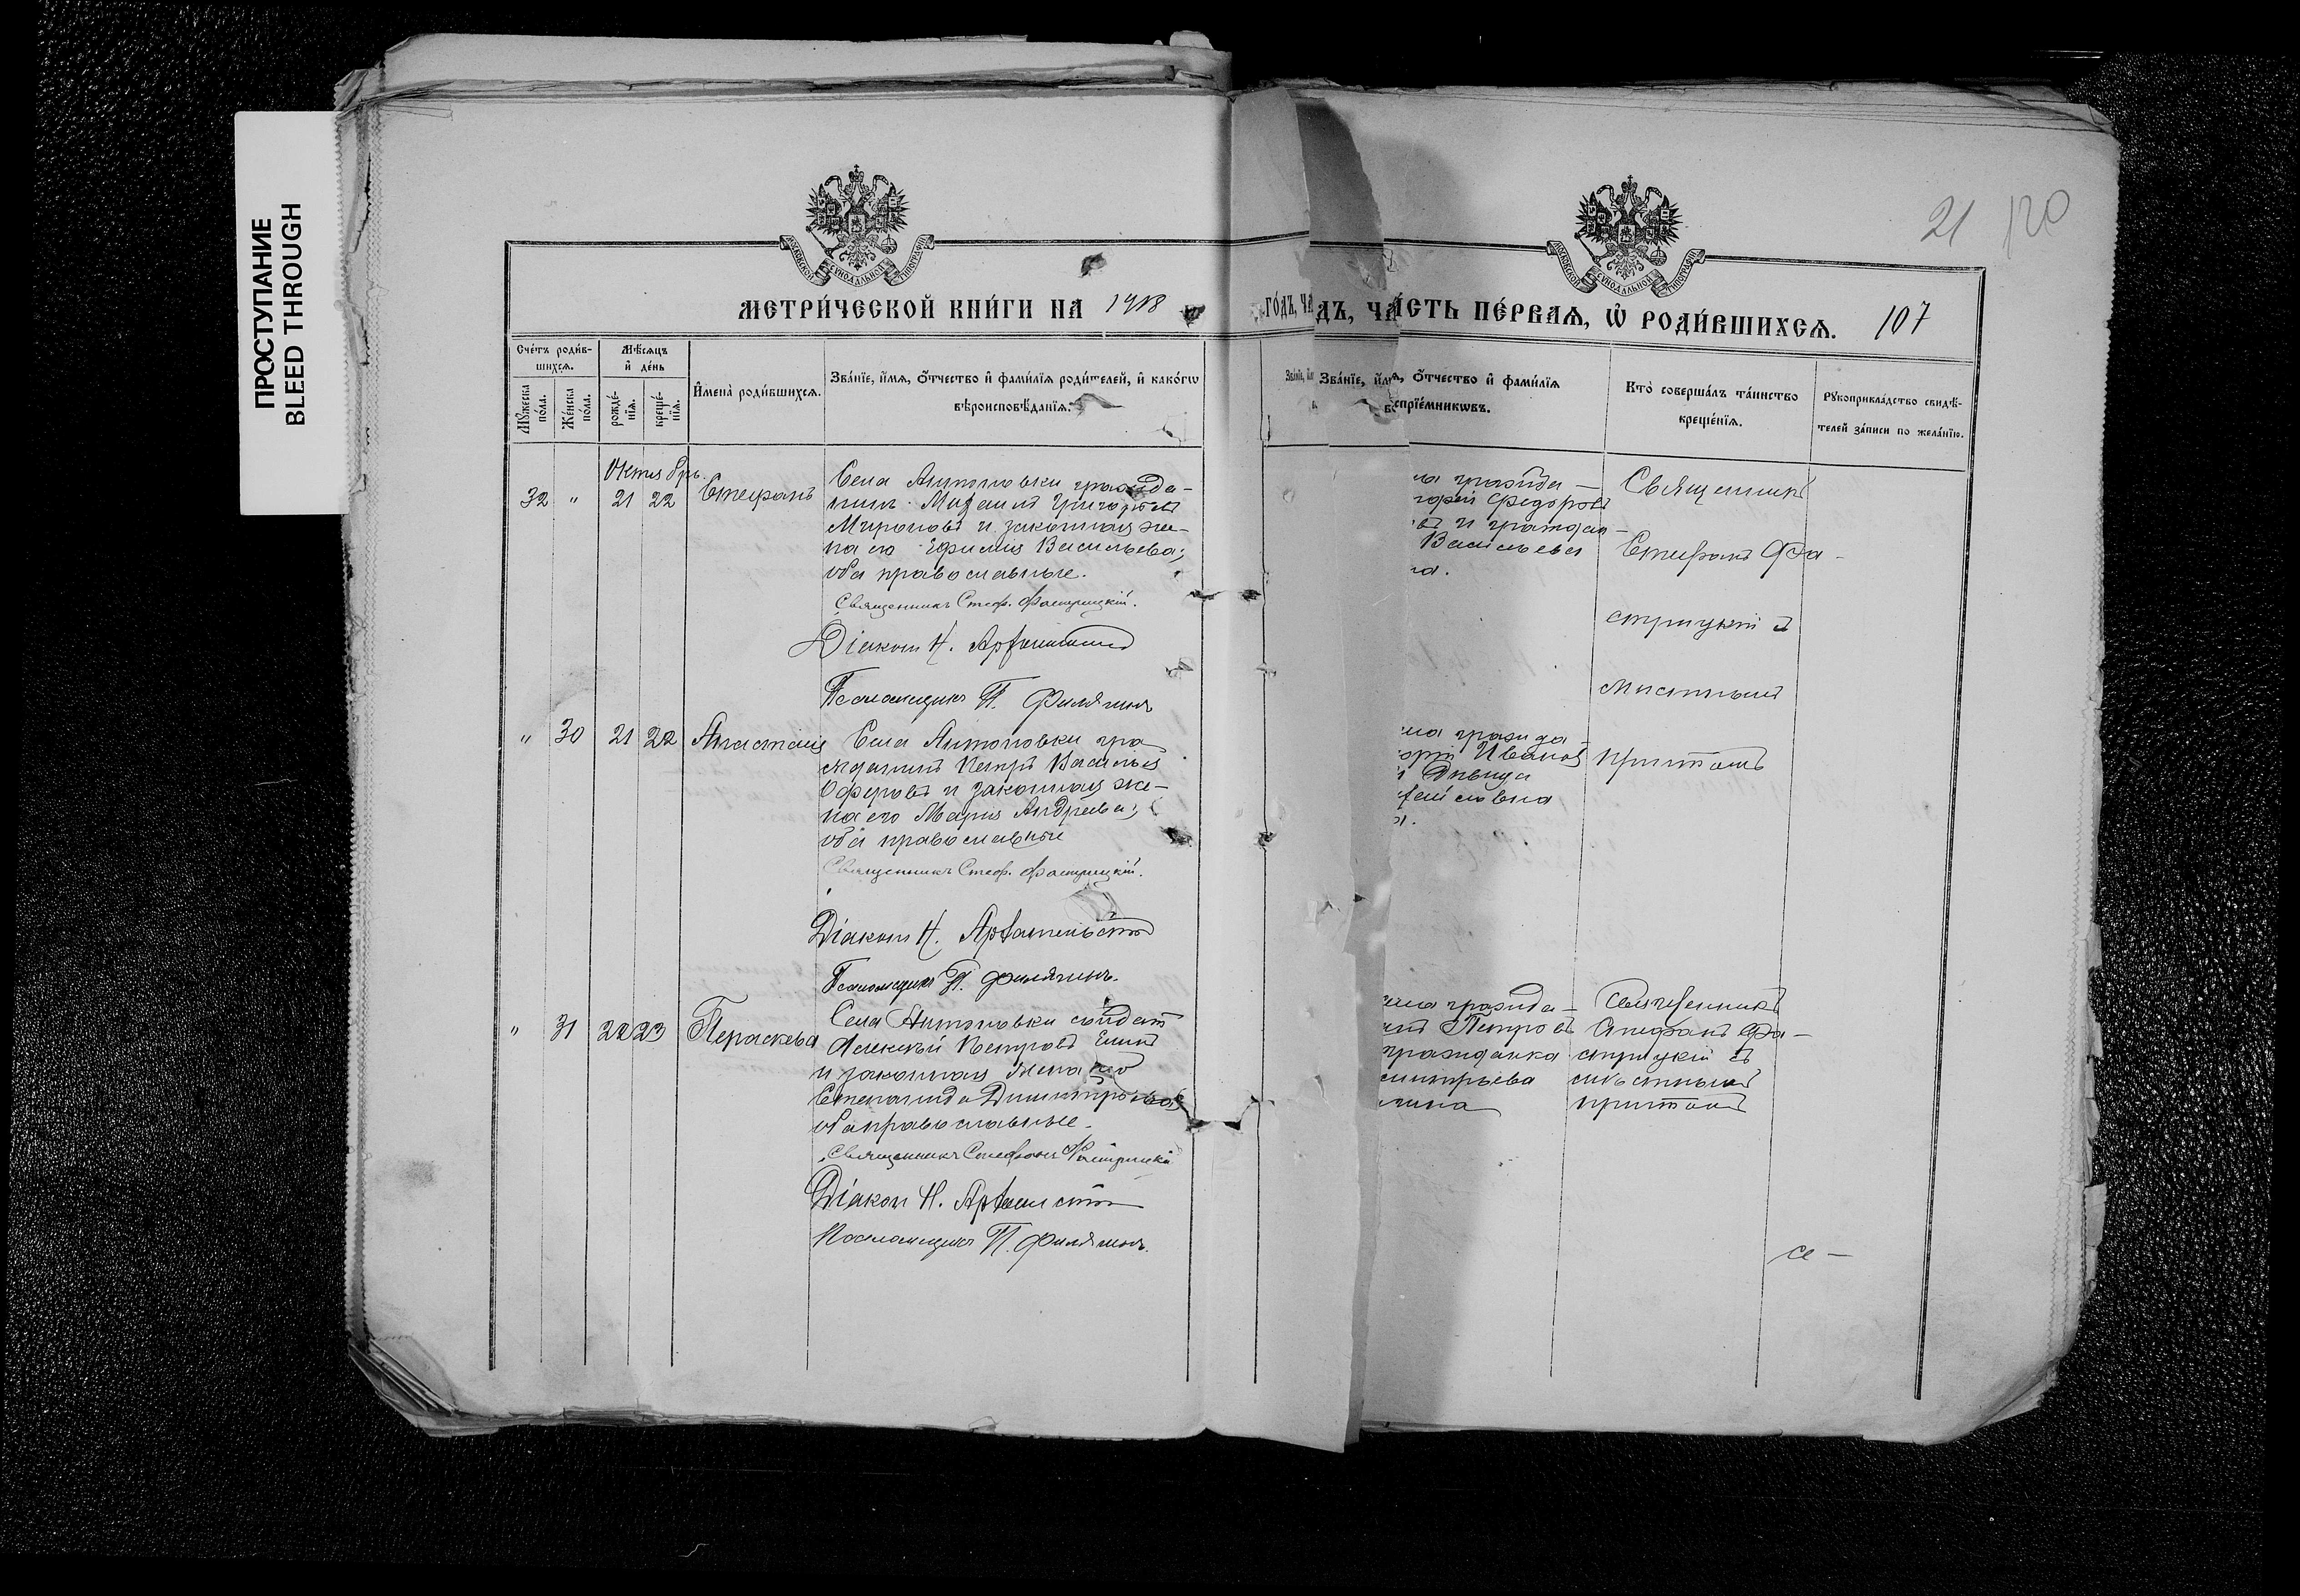 ПРОСТУПАНИЕ
BLEED THROUGH
МОСКОВСКОЙ СѴНОДАЛЬНОЙ ТИПОГРАФІИ
МОСКОВСКОЙ СѴНОДАЛЬНОЙ ТИПОГРАФІИ
21 120
МЕТРИ́ЧЕСКОЙ КНИ́ГИ НА 1918
ГО́ДЪ, ЧА
ДЪ, ЧА́СТЬ ПЕ́РВАЯ, Ѡ҆ РОДИ́ВШИХСЯ. 107
Сче́тъ роди́в-
шихся.
Мꙋ́жеска по́ла.
Же́нска по́ла.
Мѣ́сяцъ
и҆ де́нь
рожде́-
нїя.
креще́-
нїя.
И҆мена̀ роди́вшихся.
Зва́нїе, и҆́мя, ѻ҆́тчество и҆ фами́лїя роди́телей, и҆ како́гѡ
вѣроисповѣ́данїя.
Зва́нїе, и҆́мя, ѻ҆́тчество и҆ фами́лїя
воспрїе́мникѡвъ.
Кто̀ соверша́лъ та́инство
креще́нїя.
Рꙋкоприкла́дство свидѣ́-
телей за́писи по жела́нїю.
Октябрь.
32 " 21 22 Стефанъ
Села Антоновки гражда-
нинъ Михаилъ Григорьевъ
Мироновъ и законная же-
на его Ефимія Васильева;
оба православные.
Священникъ Стеф. Фастрицкій.
Діаконъ Н.
Псаломщикъ П. Филягинъ
ла гражда-
горій Федоровъ
въ и граждан-
Васильева
на.
Священникъ
Стефанъ Фа-
стрицкій съ
мѣстнымъ
причтомъ
" 30 21 22 Анастасія
Села Антоновки гра
жданинъ Петръ Васильев
Оферовъ и законная же-
на его Марія Андреева;
оба православные
Священникъ Стеф. Фастрицкій.
Діаконъ Н.
Псаломщикъ П. Филягинъ.
ла гражда-
оргій Иванов
и Дѣвица
овна
" 31 22 23 Параскева
Села Антоновки солдат
Алексѣй Петровъ Елинъ
и законная жена его
Степанида Димитріева
оба православные.
Священникъ Стефанъ Фастрицкій
Діаконъ Н.
Псаломщикъ П. Филягинъ.
села гражда-
Петровъ
гражданка
митрьева
Священникъ
Стефанъ Фа-
стрицкій съ
мѣстнымъ
причтомъ
се-